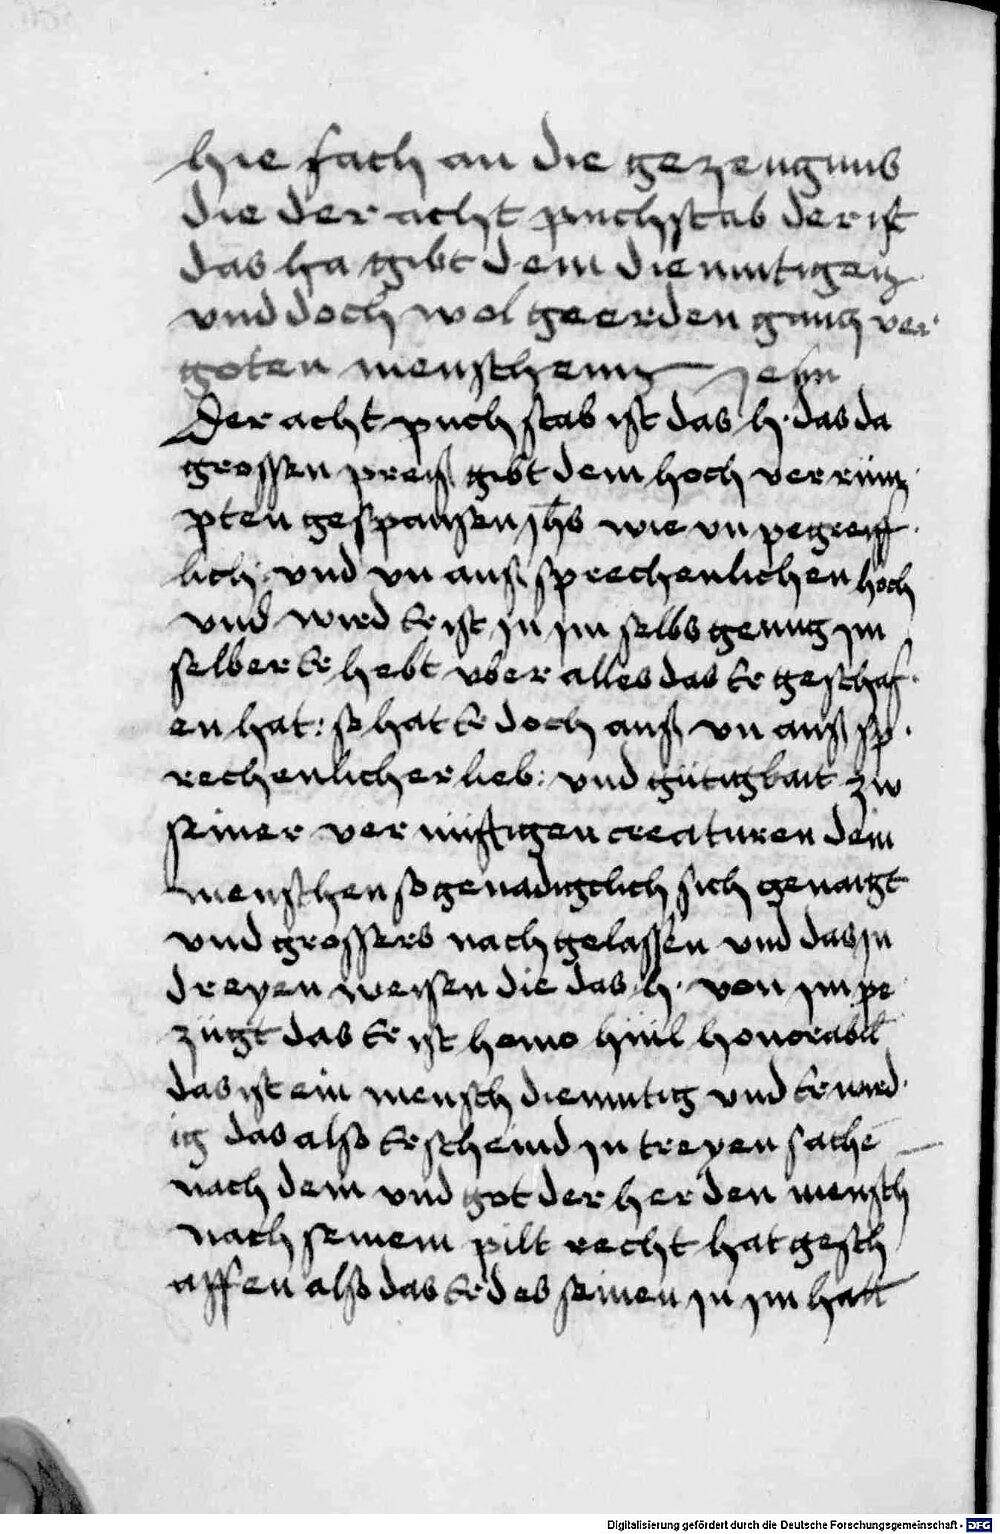 hie fach an die gezeugnus
die der acht puchstab der ist
das ha gibt dem diemutigen
vnd doch wol geerden gancz ver
goten menschenn Jesu
Der acht puchstab ist das h· das da
grossen preiß gibt dem hoch verrüm
pten gespanßen jhs wie vn pegreiff
lich· vnd vn auß sprechenlichen hoch
vnd wird Er ist jn jm selbs genug jm
selber Er hebt vber alles das Er geschaf
en hat: so hat Er doch auß vn auß sp
rechenlicher lieb: vnd gütigkait zw
seiner vernüftigen creaturen dem
menschen so genadigclich sich genaigt
vnd grossers nach gelassen vnd das jn
dreyen weisen die das h· von jm pe
zügt das Er ist homo hüil honorabil
das ist ein mensch diemutig vnd Erwird
ig das also Erscheind jn treyen sache
nach dem vnd got der her den mensch
nach seinem pilt recht hat gesch
affen also das Er des seinen jn jm hatt
Digitalisierung gefördert durch die Deutsche Forschungsgemeinschaft - DFG